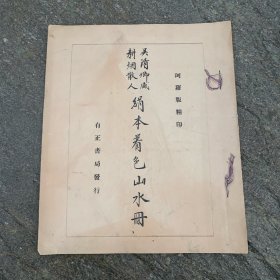 珂羅版精印
吳清卿藏
耕烟散人
絹本着色山水冊
有正書局發行